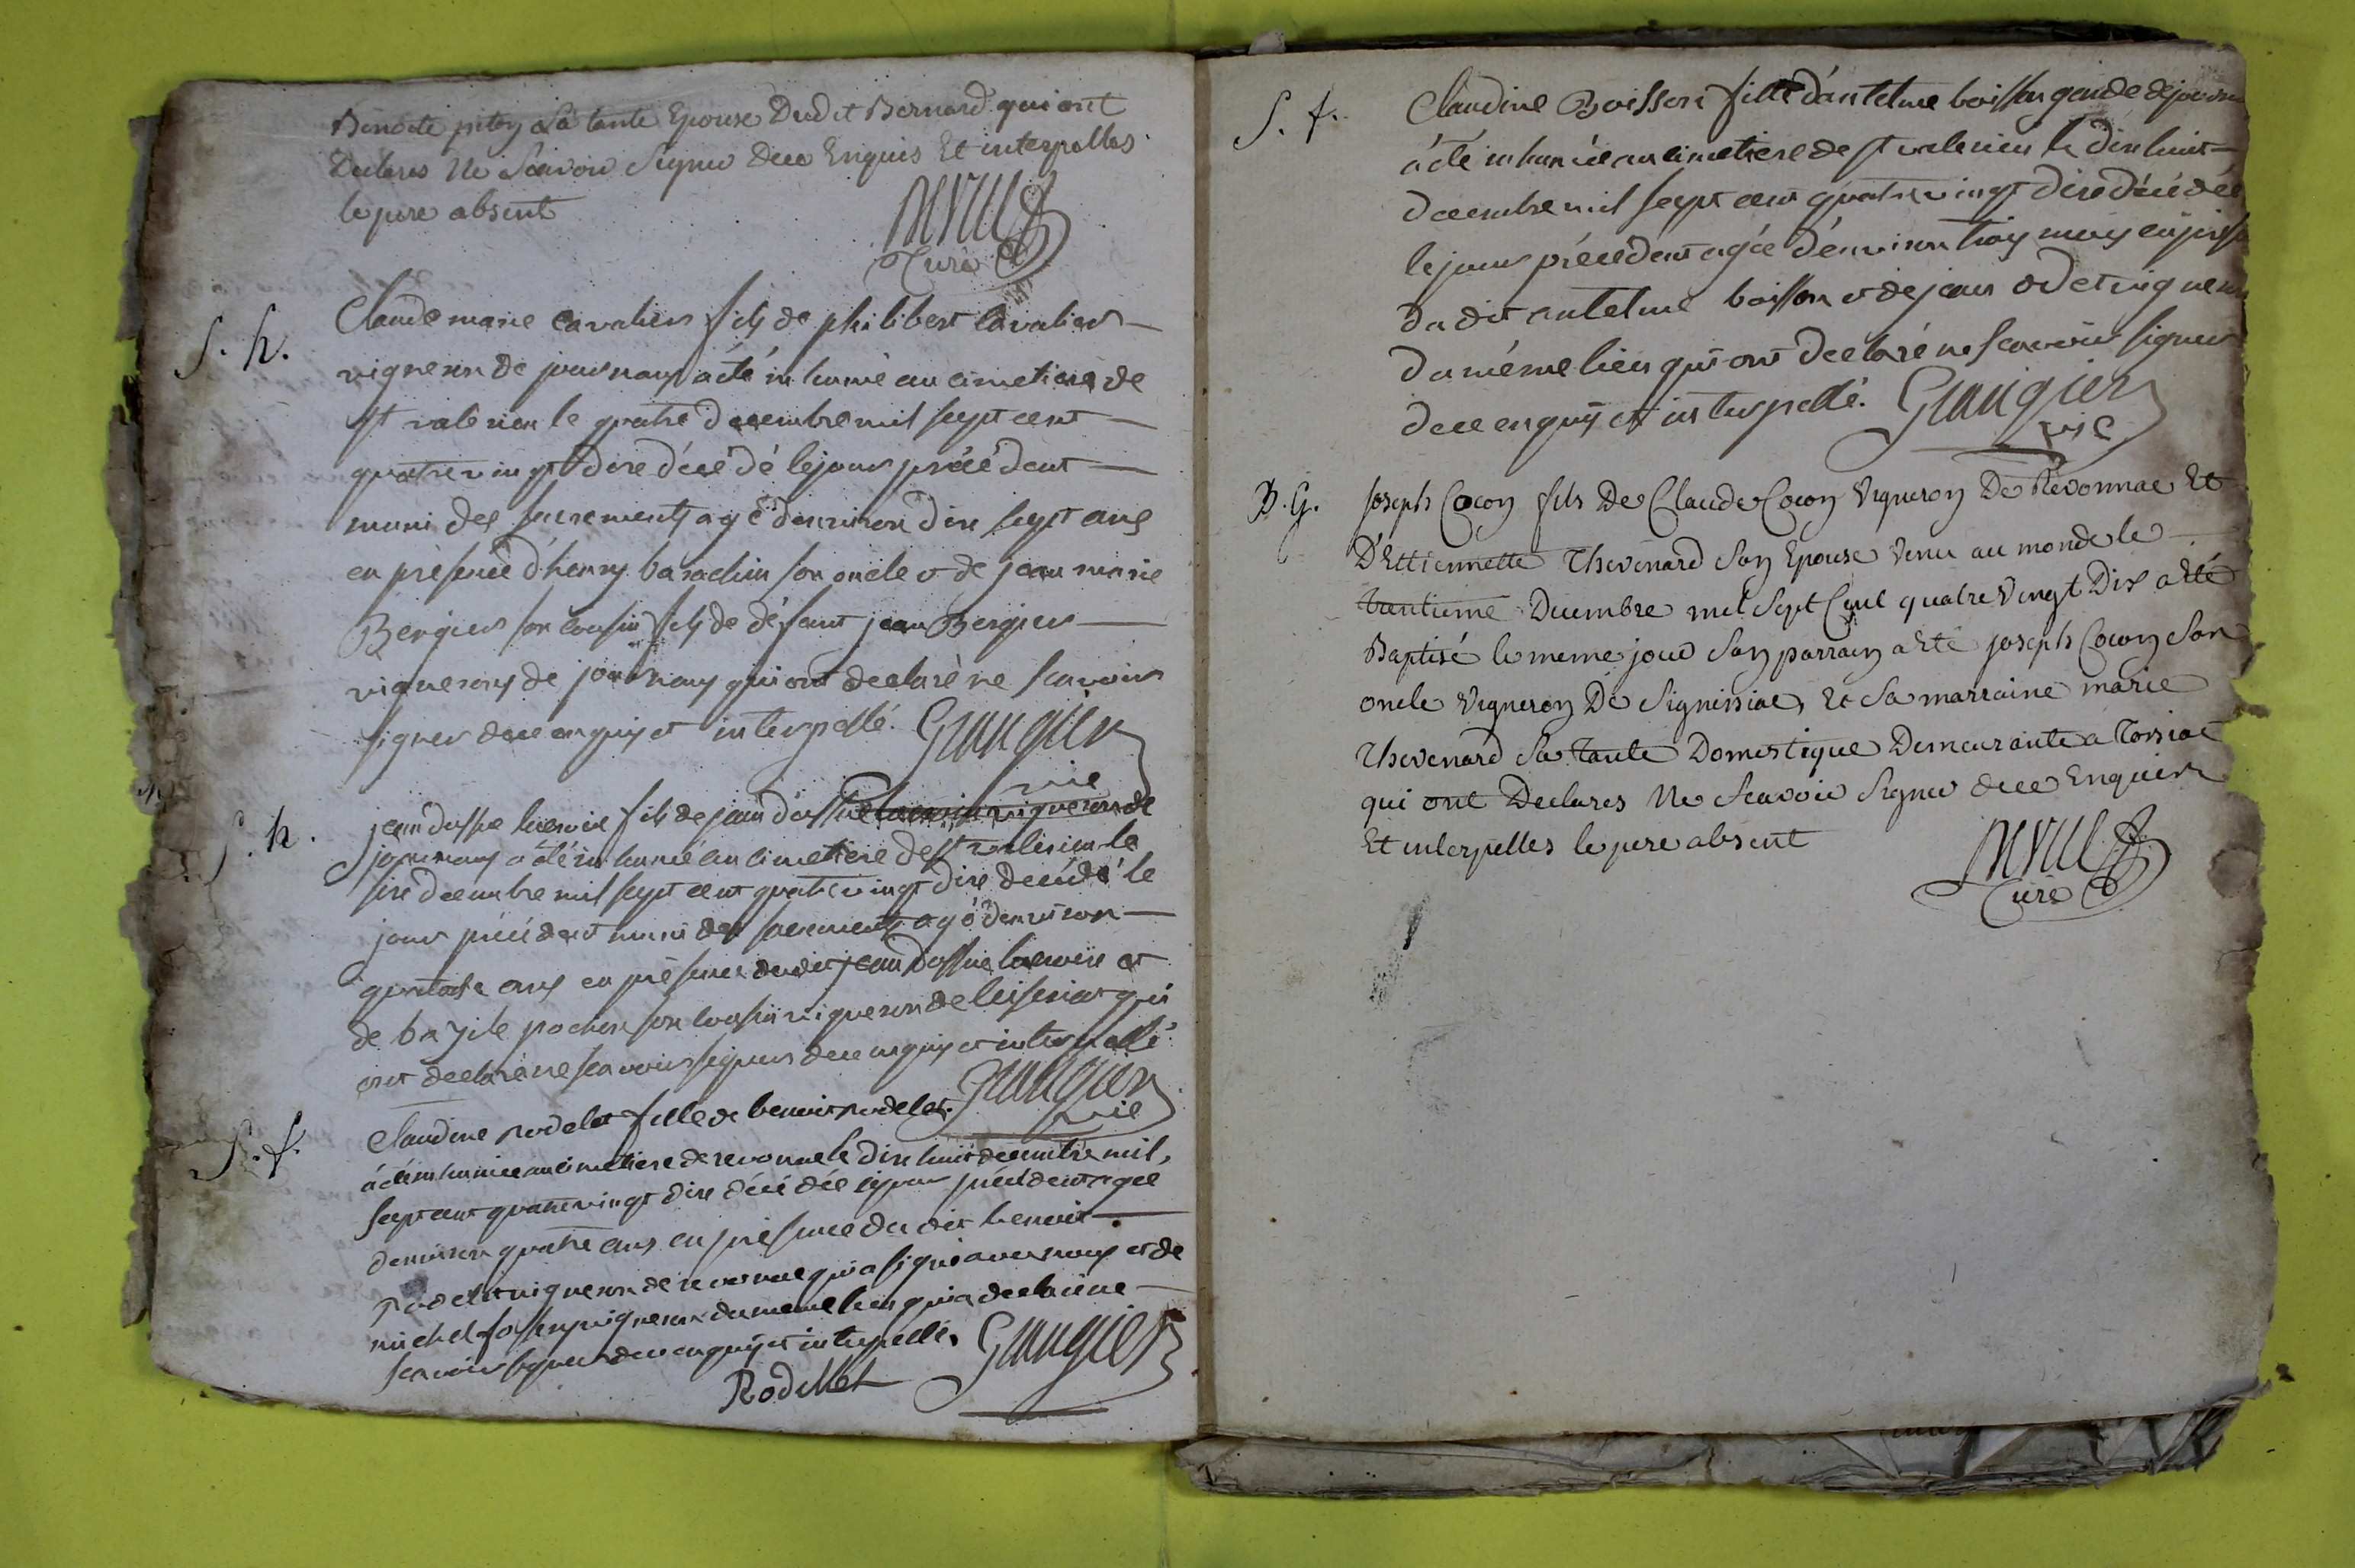 Benoite piton Sa tante Epouse Dudit Bernard qui ont
Declares Ne Scavoir Signer Dece Enquis Et interpelles
le pere absent
Curé
S. h.
Claude marie cavalier fils de philibert cavalier
vigneron de journans a été inhumé au cimetiere de
st valerien le quatre decembre mil sept cent
quatre vingt dixe décédé le jour précédent
muni des sacrements agé denviron dix sept ans
en présence d'henry barachin son oncle et de jean marie
Bergier son cousin fils de défunt jean Bergier
vignerons de journans qui ont declaré ne scavoir
signer dece enquis et interpellé. Grangier
vic
S. h.
jean fils de jean vigneron de
journans a été inhumé au cimetiere de st valerien le
decembre mil sept cent quatre vingt dixe décédé le
jour précédent muni des sacrements agé denviron
ans en présence dudit jean et
de bazile pochon son cousin vigneron de qui
ont declaré ne scavoir signer dece enquis et interpellé
Grangier
vic
S. f.
Claudine rodelet fille de benoit rodelet
a été inhumée au cimetiere de revonnas le dix huit decembre mil
sept cent quatre vingt dixe décédée le jour précédent agée
denviron quatre ans en présence du dit benoit
rodelet vigneron de revonnas qui a signé avec nous et de
michel vigneron du meme lieu qui a declaré ne
scavoir signer dece enquis et interpellé. Grangier
Rodellet
S. f.
Claudine Boisson fille d'antelme boisson garde de
a été inhumée au cimetiere de st valerien le dix huit
decembre mil sept cent quatre vingt dixe décédée
le jour précédent agée d'environ trois mois en
du dit antelme boisson et de jean vigneron
du même lieu qui ont declaré ne scavoir signer
dece enquis et interpellé. Grangier
vic
B. G.
Joseph Cocon fils De Claude Cocon Vigneron De Revonnas Et
D'Ettiennette Thevenard Son Epouse Venu au monde le
trentieme Decembre mil Sept Cent quatre Vingt Dix a Eté
Baptisé le meme jour Son parrain a Eté joseph Cocon Son
oncle Vigneron De Signissiat, Et Sa marraine marie
Thevenard Sa Tante Domestique Demeurante a Torsiat
qui ont Declares Ne Scavoir Signer dece Enquis
Et interpelles le pere absent
Curé